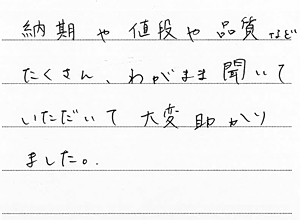 納期や値段や品質など
たくさん、わがまま聞いて
いただいて大変助かり
ました。